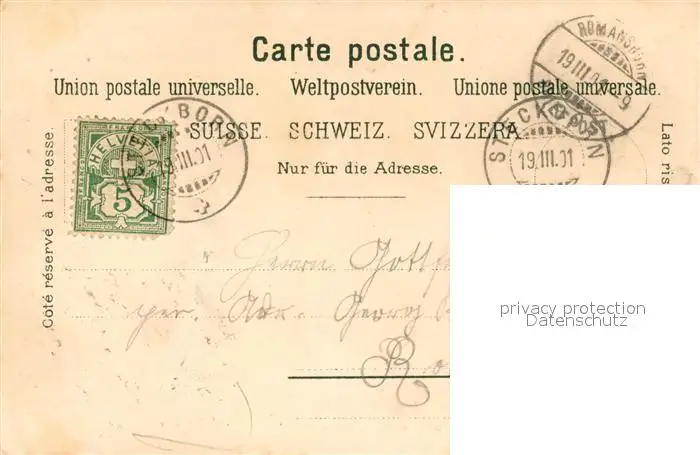 Carte postale.
Union postale universelle. Weltpostverein. Unione postale universale.
SUISSE. SCHWEIZ. SVIZZERA
Nur für die Adresse.
Côté réservé à l'adresse.
Lato ris
ROMANSHORN
19 III 01 - 9
STECKBORN
19.III.01
STECKBORN
19.III.01
HELVETIA
5
Herrn Gottf
per. Adr. Georg
Ro
privacy protection
Datenschutz